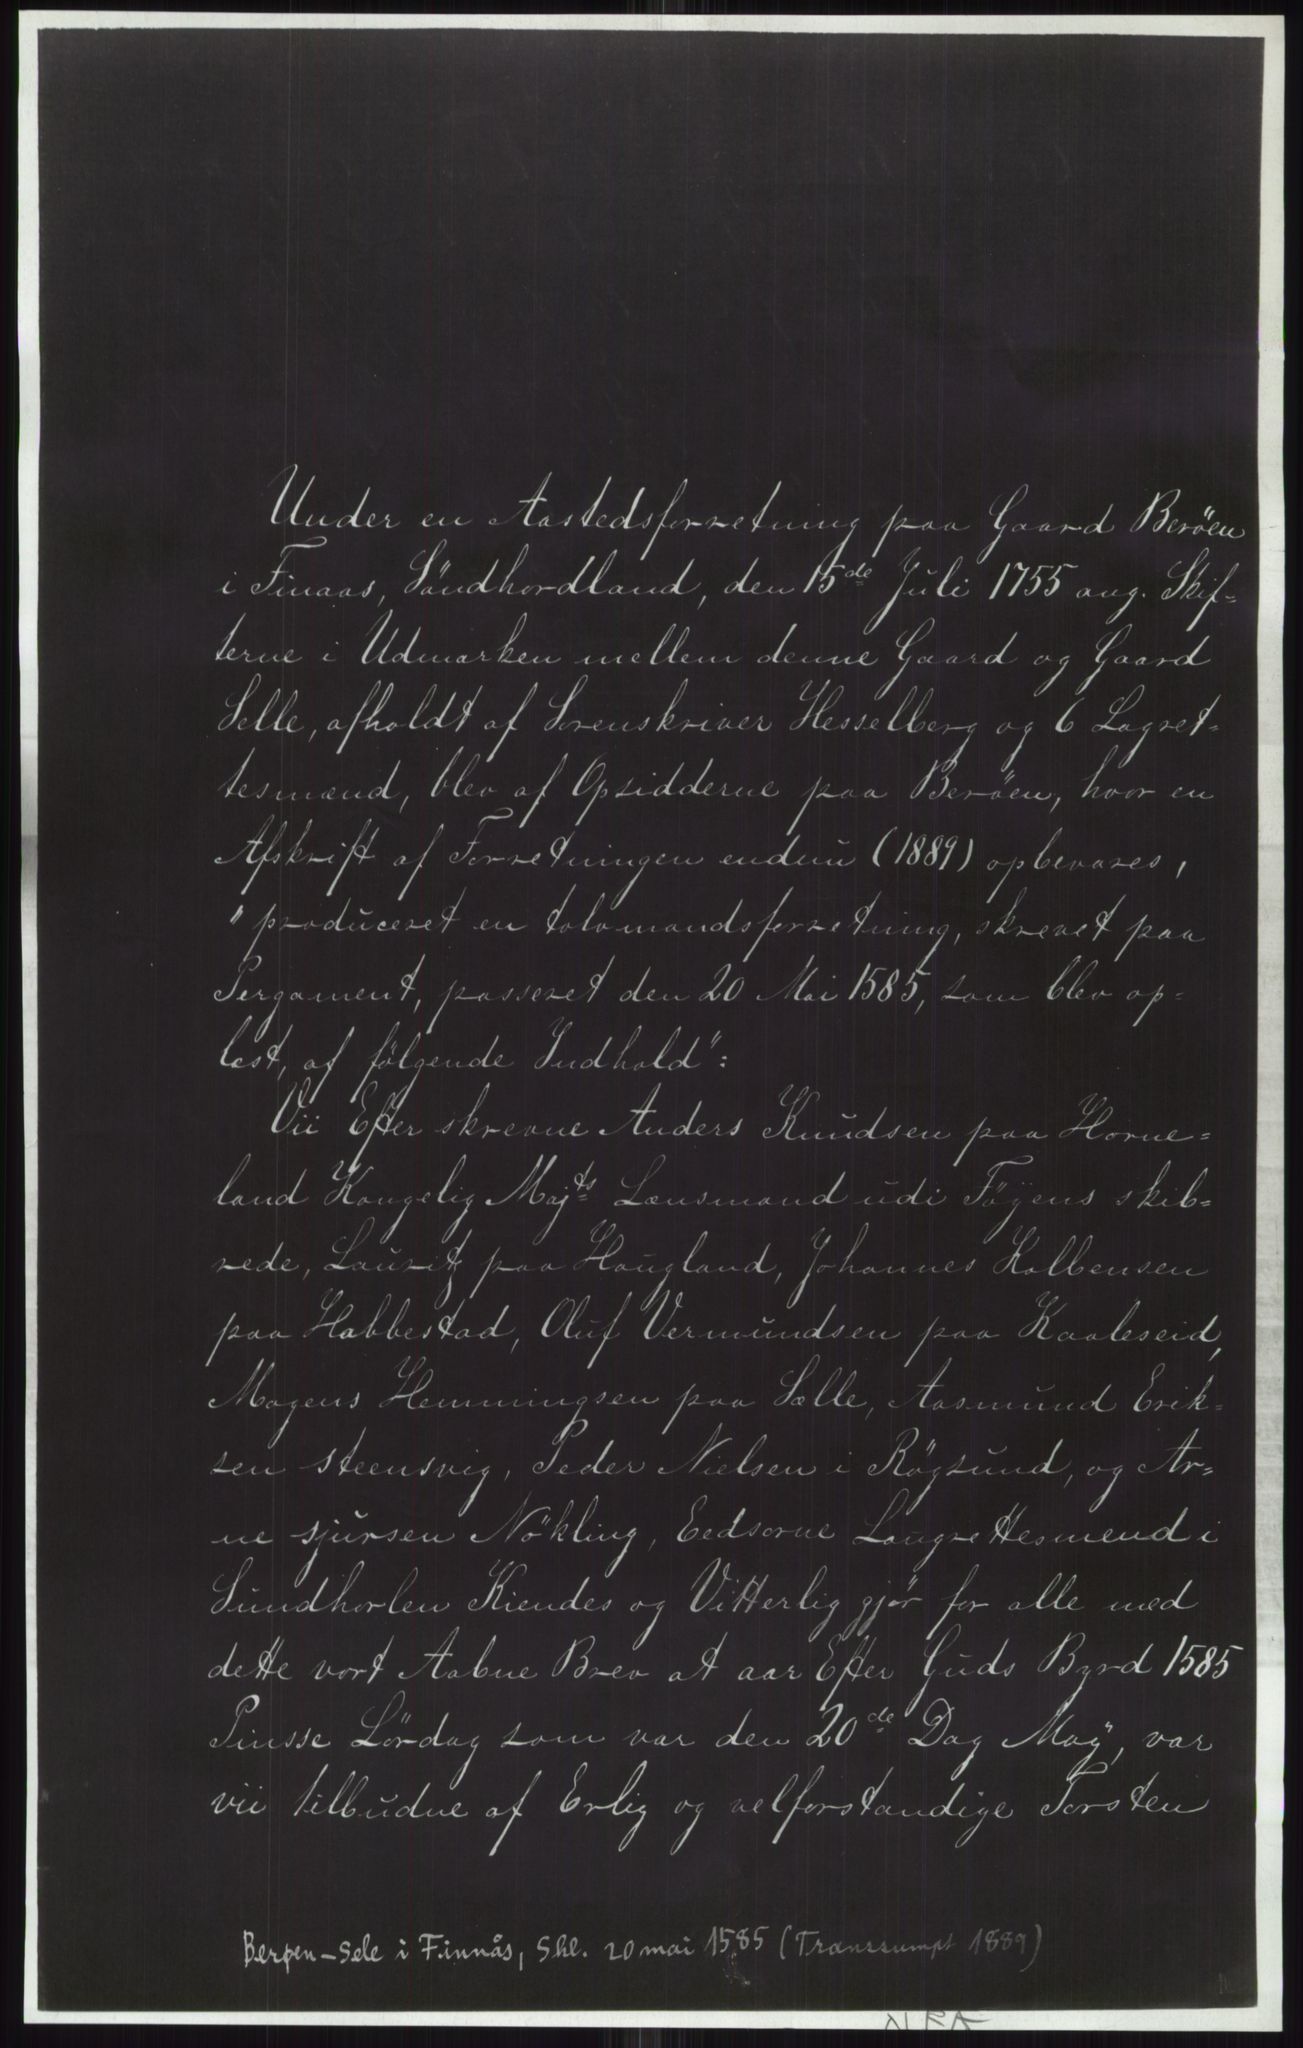 Under en Aastedsforretning paa Gaard Beröen
i Finaas, Söndhordland, den 15de Juli 1755 ang. Skif=
terne i Udmarken mellem denne Gaard og Gaard
Selle, afholdt af Sorenskriver Hesselberg og 6 Lagret=
tesmænd, blev af Opsidderne paa Beröen, hvor en
Afskrift af Forretningen endnu (1889) opbevares,
"produceret en tolvmandsforretning, skrevet paa
Pergament, passeret den 20 Mai 1585, som blev op=
læst, af følgende Indhold":
Vii Efter skrevne Anders Knudsen paa Horne=
land Kongelig Majts Lænsmand udi Föÿens skib=
rede, Lauritz paa Haugland, Johannes Kolbensen
paa Habbestad, Oluf Vermundsen paa Kaaleseid,
Mogens Hemmingsen paa Sælle, Aasmund Erik=
sen steensvig, Peder Nielsen i Rögsund, og Ar=
ne sjursen Nökling, Eedsorne Laugrettesmend i
Sundhorlen Kiendes og Vitterlig gjör for alle med
dette vort Aabne Brev at aar Efter Guds Byrd 1585
Pinsse Lördag som var den 20de Dag Maÿ, var
vii tilbudne af Erlig og velforstandige Torsten
Berøen - Sele i Finnås, Shl. 20 mai 1585 (Transsumpt 1889)
NRA